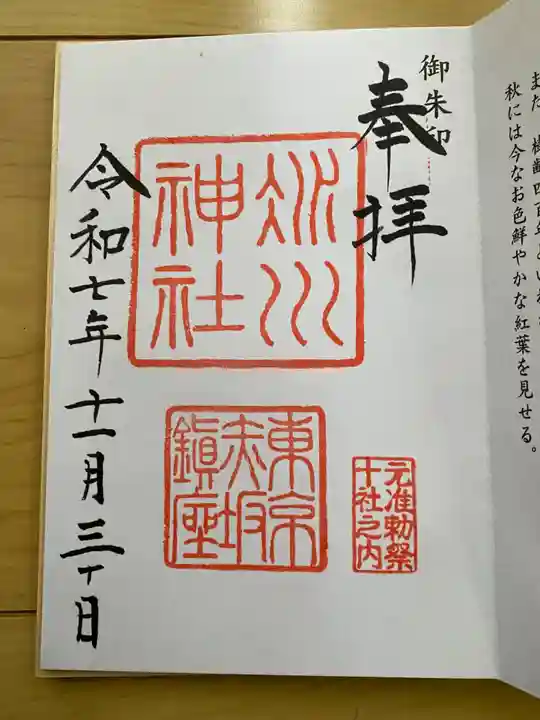 また、樹齢四百年といわれ
秋には今なお色鮮やかな紅葉を見せる。
御朱印
奉拝
氷川
神社
東京
赤坂
鎮座
元准勅祭
十社之内
令和七年十一月三十日